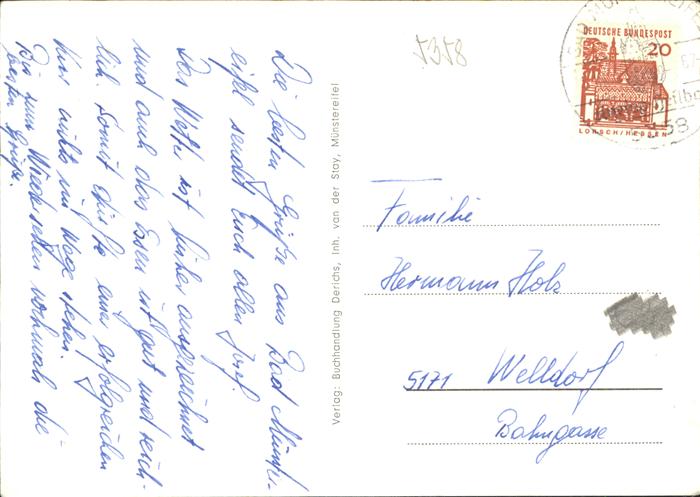 Die besten Grüße aus Bad Münster-
eifel sendet Euch allen Josef.
Das Wetter ist bisher ausgezeichnet
und auch das Essen ist gut und reich-
lich. Somit dürfte einer erfolgreichen
Kur nichts im Wege stehen.
Bis zum Wiedersehen nochmals die
besten Grüße.
Verlag: Buchhandlung Derichs, Inh. van der Stay, Münstereifel
5358
DEUTSCHE BUNDESPOST
20
LORSCH/HESSEN
Familie
Hermann Holz
5171 Welldorf
Bahngasse